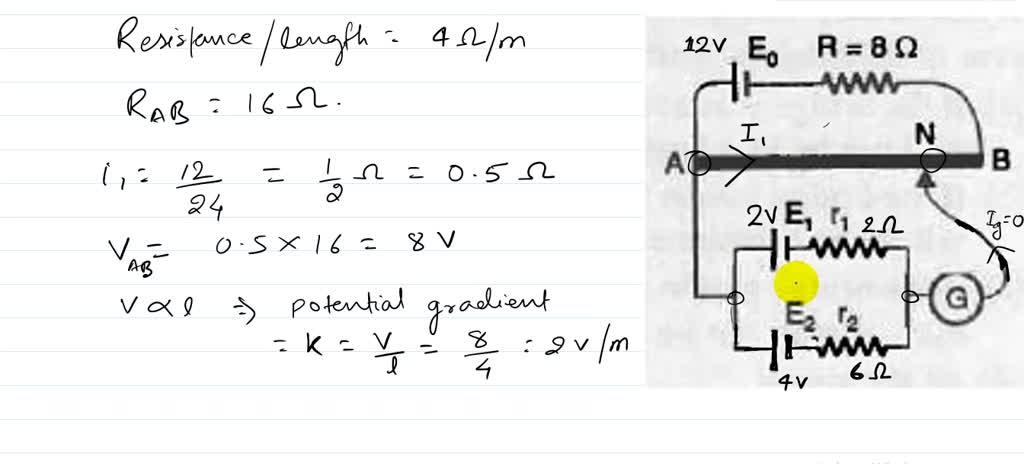 Resistance/length = 4Ω/m
R_AB = 16 Ω.
i₁ = 12/24 = 1/2 Ω = 0.5 Ω
V_AB = 0.5 × 16 = 8 V
V ∝ l ⇒ potential gradient
= K = V/l = 8/4 = 2 V/m
12V E₀ R = 8 Ω
I₁ N
A B
2V E₁ r₁ 2Ω Ig=0
G
E₂ r₂
4V 6Ω